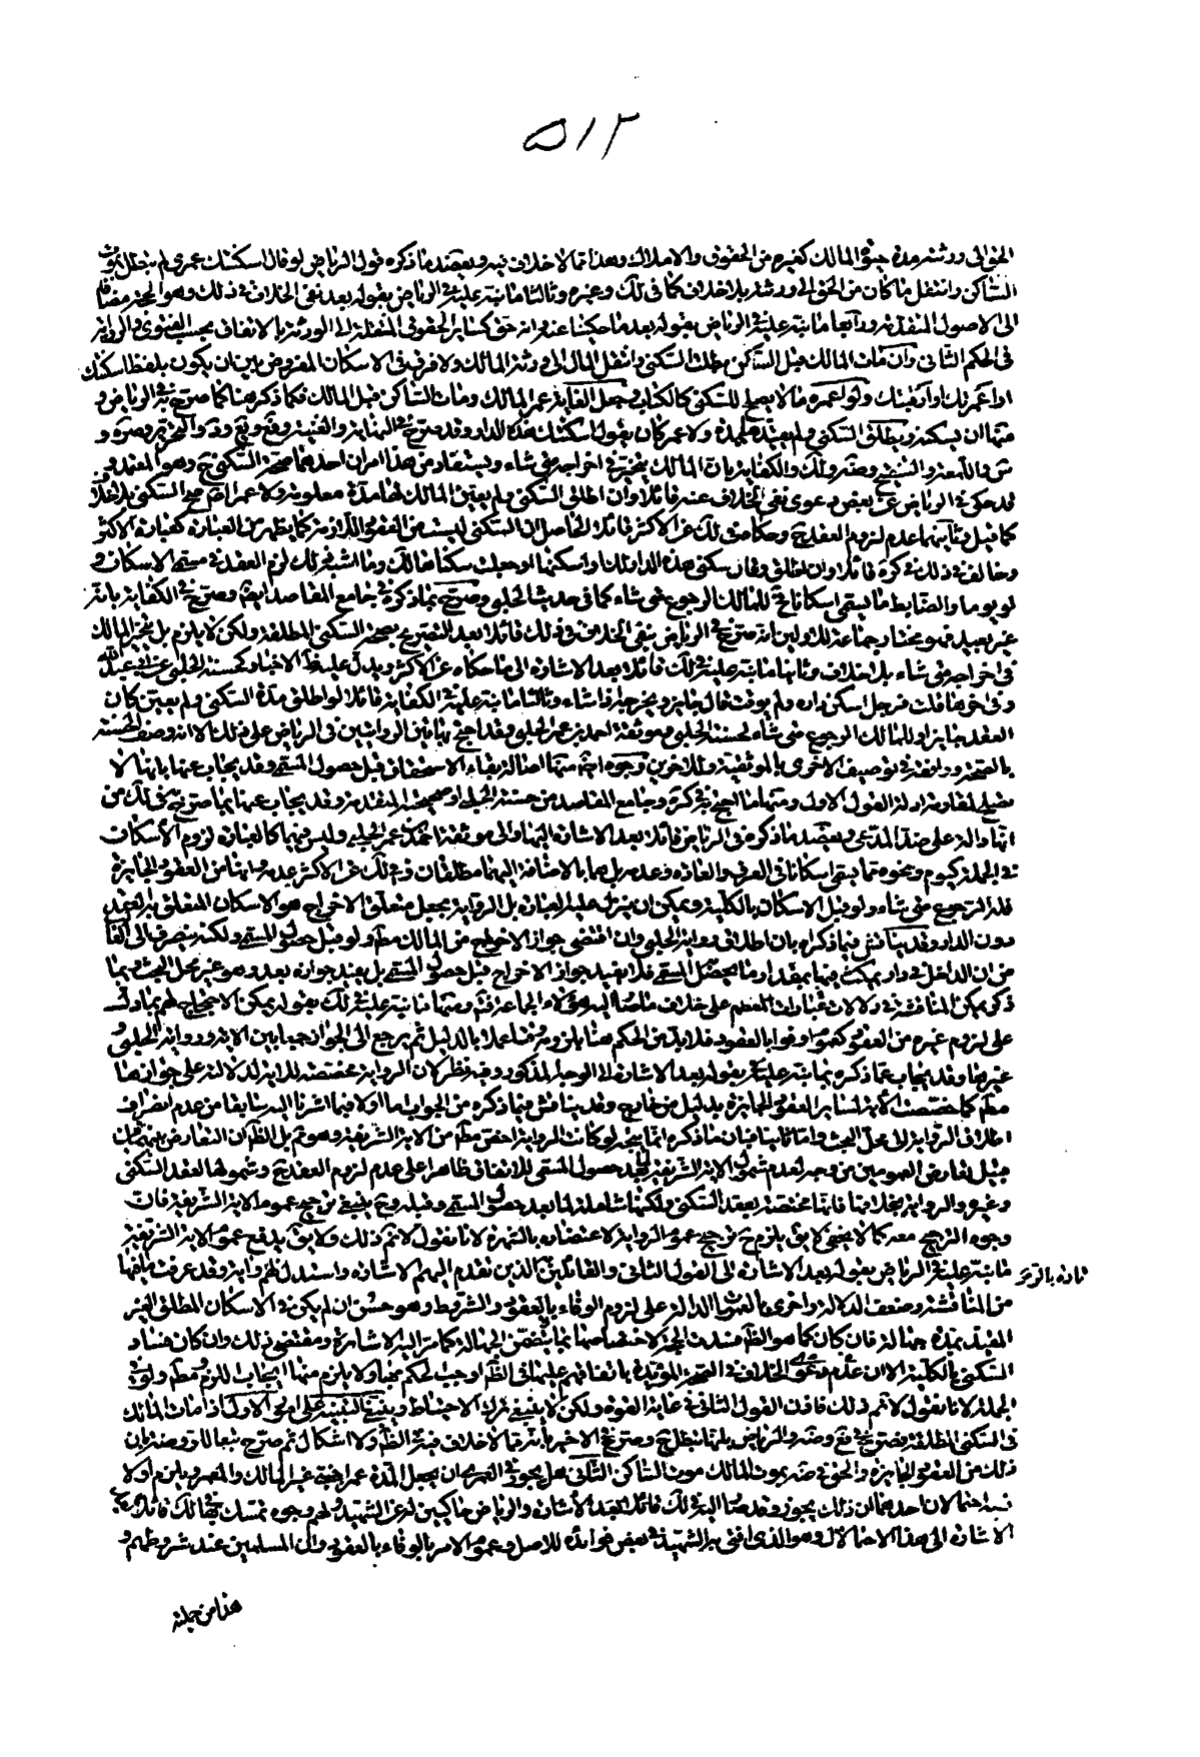 ٥١٢
الحق الى ورثته مدة حيوة المالك كغيره من الحقوق والاملاك وهذا مما لا خلاف فيه ويعضده ما ذكره قول الرياض لو قال اسكنتك عمرى لم يبطل بموت
الساكن وانتقل ما كان من الحق الى ورثته بلا خلاف كما فى لك وغيره وثالثا ما نبه عليه فى الرياض بقوله بعد نفى الخلاف فى ذلك وهو الحجة مضافا
الى الاصول المتقدمة ورابعا ما نبه عليه فى الرياض بقوله بعد ما حكينا عنه وانه حق كساير الحقوق المنتقلة الى الورثة بالاتفاق بحسب الفتوى والرواية
فى الحكم الثانى وان مات المالك قبل الساكن بطلت السكنى وانتقل المال الى ورثة المالك ولا فرق فى الاسكان المفروض بين ان يكون بلفظ اسكنتك
او اعمرتك او ارقبتك ولو اعمره ما لا يصلح للسكنى كالكتاب وجعل الغاية عمر المالك ومات الساكن قبل المالك فكما ذكره هنا كما صرح به فى الرياض و
منها ان يسكنه ويطلق السكنى ولم يقيده بمدة ولا عمر كان يقول اسكنتك هذه الدار وقد صرح فى النهاية والغنية و
المالك يتخير فى اخراجه متى شاء ويستفاد من هذا امران احدهما صحة السكنى ح وهو المعتمد و
قد حكى فى الرياض عن بعض دعوى نفى الخلاف عنه قائلا وان اطلق السكنى ولم يعين المالك لها مدة معلومة ولا عمر احدهما صح السكنى بلا خلاف
كما قيل وثانيهما عدم لزوم العقد ح وحكاه فى لك عن الاكثر قائلا الحاصل ان السكنى ليست من العقود اللازمة كما يظهر من العبارة كعبارة الاكثر
وخالف فى ذلك فى كره قائلا وان اطلق وقال سكنى هذه الدار لك او اسكنها او هبك سكناها لك وما اشبه ذلك لزم العقد فى مسمى الاسكان و
لو يوما والضابط ما يسمى اسكانا وح للمالك الرجوع متى شاء كما فى حديث الحلبى وصرح بما ذكره فى جامع المقاصد ايضا وصرح فى الكفاية بانه
غير بعيد فهو مختار جماعة للاولين انه صرح فى الرياض بنفى الخلاف فى ذلك قائلا بعد التصريح بصحة السكنى المطلقة ولكن لا يلزم بل يتخير المالك
فى اخراجه متى شاء بلا خلاف وثانيا ما نبه عليه فى لك قائلا بعد الاشارة الى ما حكاه عن الاكثر ويدل عليه ظ الاخبار كحسنة الحلبى عن ابى عبد الله
وفى اخرها قلت فرجل اسكن داره ولم يوقت قال جايز ويخرجه اذا شاء وثالثا ما نبه عليه فى الكفاية قائلا لو اطلق مدة السكنى ولم يعين كان
العقد جايزا وللمالك الرجوع متى شاء لحسنة الحلبى وموثقة احمد بن عمر الحلبى وقد احتج بهاتين الروايتين فى الرياض على ذلك الا انه وصف الحسنة
بالصحة ووافقه فى توصيف الاخرى بالموثقية وللاخرين وجوه ايضا منها اصالة بقاء الاستحقاق قبل حصول المسمى وقد يجاب عنها بانها لا
تصلح لمقاومة ادلة القول الاول ومنها ما احتج به فى كره وجامع المقاصد من حسنة الحلبى او صحيحته المتقدمة وقد يجاب عنها بما صرح فى لك من
انها دالة على ضد المدعى ويعضده ما ذكره فى الرياض قائلا بعد الاشارة اليها والى موثقة احمد بن عمر الحلبى وليس فيها كالعبارة لزوم الاسكان
فى الجملة كيوم ونحوه مما يسمى اسكانا فى العرف والعادة وعدمه بل هما بالاضافة اليهما مطلقتان وفى لك عن الاكثر عدمه وانها من العقود الجايزة
فله الرجوع متى شاء ولو قبل الاسكان بالكلية ويمكن ان ينزل عليه العبارة بل الرواية بجعل متعلق الاخراج هو الاسكان المتعلق به العقد
دون الدار وقد يناقش فيما ذكراه بان اطلاق رواية الحلبى وان اقتضى جواز الاخراج من المالك مط ولو قبل حصول المسمى ولكنه ينصرف الى الغالب
من ان الداخل فى دار يمكث فيها بمقدار ما يحصل المسمى فلا يفيد جواز الاخراج قبل حصول المسمى بل يفيد جوازه بعده وهو غير محل البحث وبما
ذكر يمكن المناقشة فى دلالات عبارات المعظم على خلاف ما صار اليه هؤلاء الجماعة فتم ومنها ما نبه عليه فى لك بقوله يمكن الاحتجاج لهم بما دل
على لزوم غيره من العقود كعموم اوفوا بالعقود فلا بد من الحكم هنا بلزومه وقتا عملا بالدليل ثم يرجع الى الجواز جمعا بين الاية ورواية الحلبى و
غيرها وقد يجاب عما ذكره بما نبه عليه بقوله بعد الاشارة الى الوجه المذكور وفيه نظر لان الرواية مخصصة للاية لدلالتها على جوازها
مط كما خصصت الاية لساير العقود الجايزة بدليل من خارج وقد يناقش فيما ذكره من الجواب اما اولا فبما اشرنا اليه سابقا من عدم انصراف
اطلاق الرواية الى محل البحث واما ثانيا فبان ما ذكره انما يتجه لو كانت الرواية اخص مط من الاية الشريفة وهو تم بل الظ ان التعارض بينهما من
قبيل تعارض العمومين من وجه لعدم شمول الاية الشريفة لبعد حصول المسمى للاتفاق ظاهرا على عدم لزوم العقد ح وشمولها لعقد السكنى
وغيره والرواية بخلافها فانها مختصة بعقد السكنى ولكنها شاملة لما بعد حصول المسمى وقبله وح ينبغى ترجيح عموم الاية الشريفة فان
وجوه الترجيح معه كما لا يخفى لا يق يلزم ح ترجيح عموم الرواية لاعتضاده بالشهرة لانا نقول لا نم ذلك ولا يق يدفع عموم الاية الشريفة
ما نبه عليه فى الرياض بقوله بعد الاشارة الى القول الثانى والقائلين الذين تقدم اليهم الاشارة واستدل لهم تارة بالرواية وقد عرفت ما فيها
من المناقشة وضعف الدلالة واخرى بالعمومات الدالة على لزوم الوفاء بالعقود والشروط وهو حسن ان لم يكن فى الاسكان المطلق الغير
المقيد بمدة جهالة فان كان كما هو الظ فسدت لاختصاصها بما يتضمن الجهالة كما مر اليه الاشارة ومقتضى ذلك وان كان فساد
السكنى بالكلية الا ان عدم الخلاف فى الصحة المؤيد باتفاقهم عليها فى الظ اوجب الحكم بها ولا يلزم منها ايجاب اللزوم مط ولو فى
الجملة لانا نقول لا نم ذلك فاذن القول الثانى فى غاية القوة ولكن لا ينبغى ترك الاحتياط وينبغى التنبيه على امور الاول اذا مات المالك
فى السكنى المطلقة فصرح فى والرياض بانها تبطل ح وصرح فى الاخير بانه مما لا خلاف فيه فى الظ ولا اشكال ثم صرح تبعا للك وضه بان
ذلك من العقود الجايزة والحق فى ضه بموت المالك موت الساكن الثانى هل يجوز فى العمرى ان يجعل المدة عمر اجنبى غير المالك والمعمر ويلزم او لا
فيه احتمالان احدهما ان ذلك يجوز وقد صار اليه فى لك قائلا بعد الاشارة والرياض حاكيين له عن الشهيد ولهم وجوه تمسك بها فى لك قائلا بعد
الاشارة الى هذا الاحتمال وهو الذى افتى به الشهيد فى بعض فوائده للاصل وعموم الامر بالوفاء بالعقود وان المسلمين عند شروطهم و
هذا من جملته